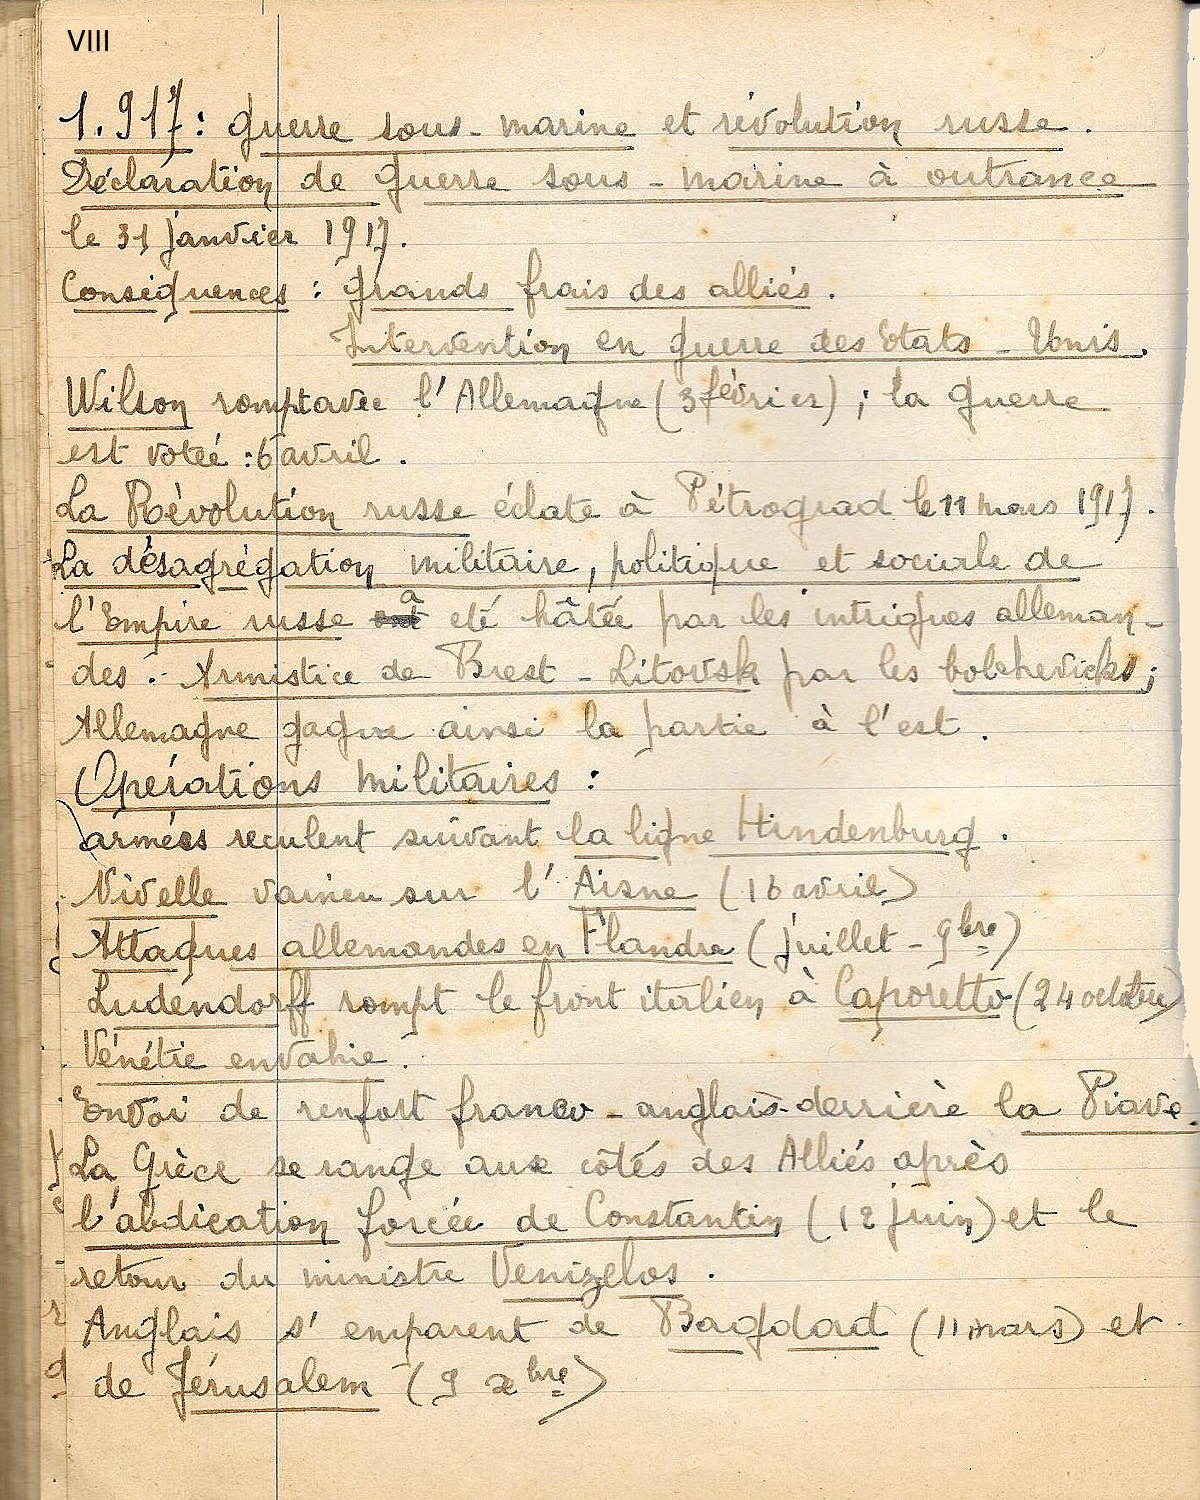 VIII
1.917: guerre sous-marine et révolution russe.
Déclaration de guerre sous-marine à outrance
le 31 janvier 1917.
Conséquences : grands frais des alliés.
Intervention en guerre des Etats-Unis.
Wilson rompt avec l'Allemagne (3 février) ; la guerre
est votée : 6 avril.
La Révolution russe éclate à Pétrograd le 11 mars 1917.
La désagrégation militaire, politique et sociale de
l'Empire russe a été hâtée par les intrigues alleman-
des. Armistice de Brest-Litovsk par les bolchevicks ;
Allemagne gagne ainsi la partie à l'est.
Opérations militaires :
armées reculent suivant la ligne Hindenburg.
Nivelle vaincu sur l'Aisne (16 avril)
Attaques allemandes en Flandre (juillet - 9bre)
Ludendorff rompt le front italien à Caporetto (24 octobre)
Vénétie envahie.
Envoi de renfort franco-anglais derrière la Piave.
La Grèce se range aux côtés des Alliés après
l'abdication forcée de Constantin (12 juin) et le
retour du ministre Venizelos.
Anglais s'emparent de Bagdad (11 mars) et
de Jérusalem (9 xbre)